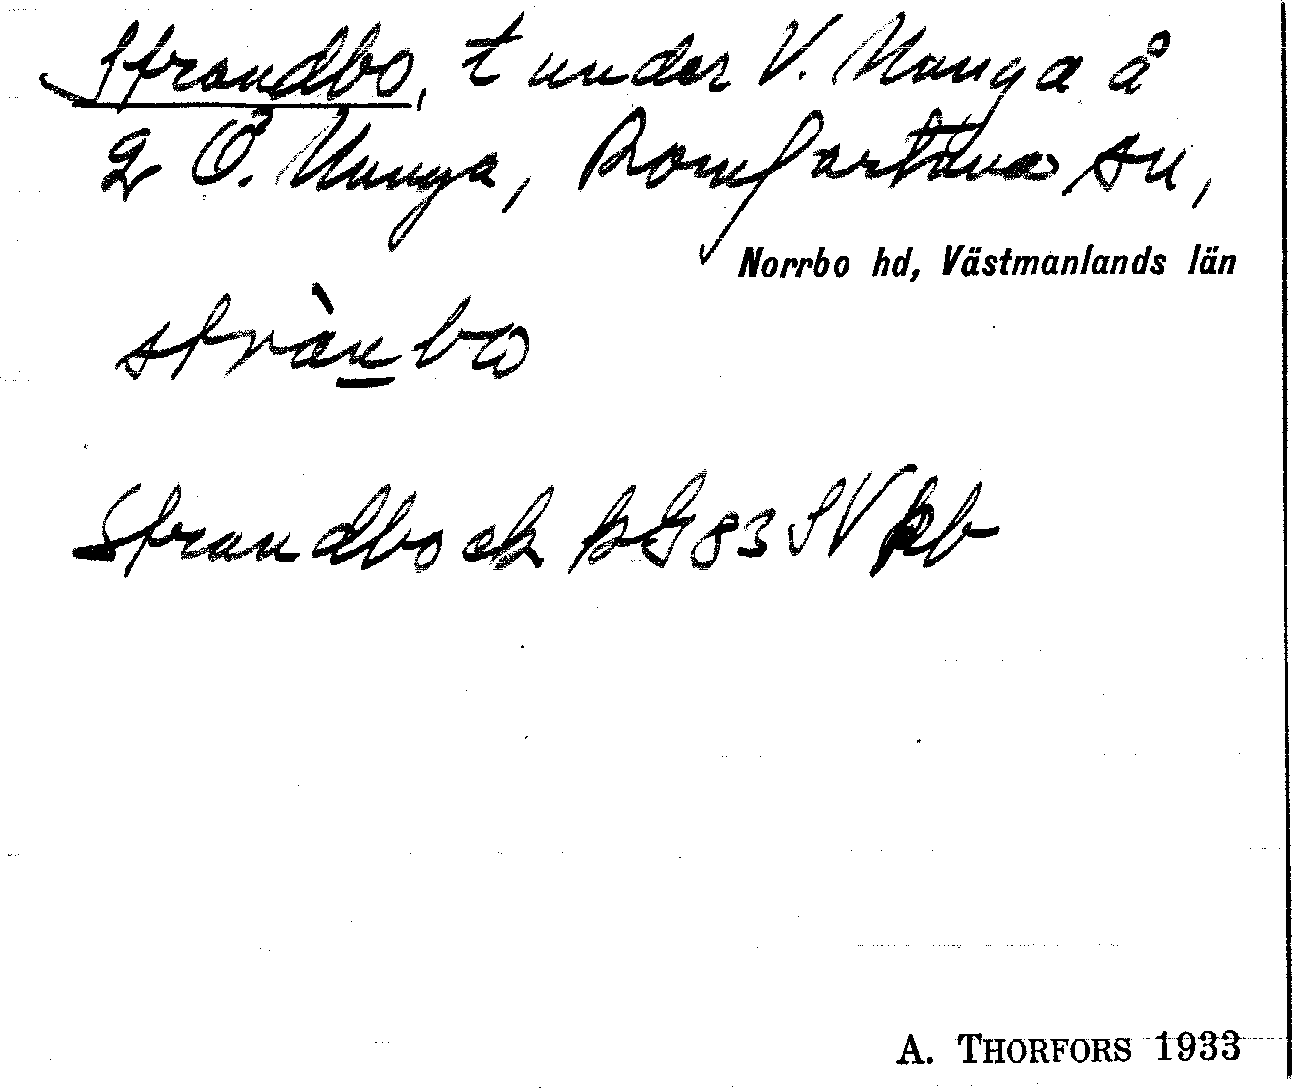 Strandbo, t under V. Nunga å
2 Ö. Nunga, Romfartuna sn,
Norrbo hd, Västmanlands län
stràn̲bo
Strandbo ek bG 83 SV
A. THORFORS 1933